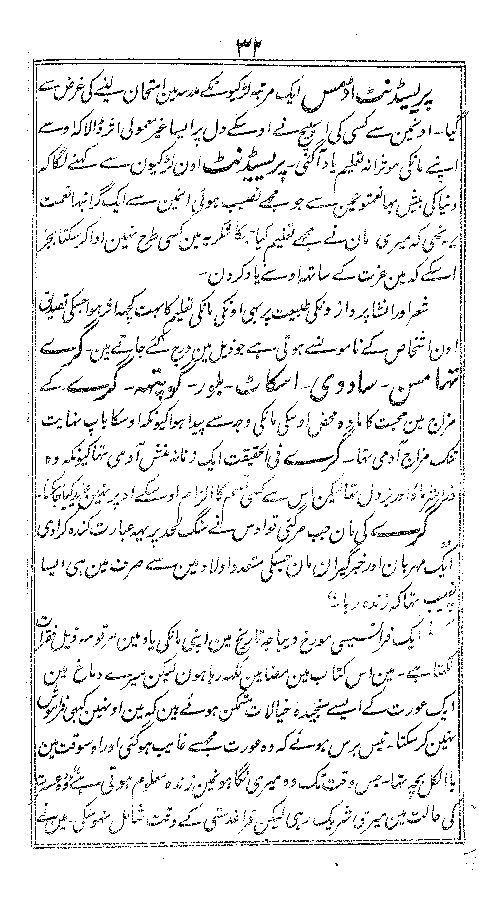 ۳۲
پریسیڈنٹ ادمس ایک مرتبہ لڑکیونکے مدرسہ مین امتحان لینے کی غرض سے
گیا۔ اونمین سے کسی کی اسپیچ نے اوسکے دل پر ایسا غیر معمولی اثر ڈالا کہ اوسے
اپنے مانکی موثرانہ تعلیم یاد آگئی۔ پریسیڈنٹ اون لڑکیون سے کہنے لگا کہ
دنیا کی بیش بہا نعمتونمین سے جو مجھے نصیب ہوئی انمین سے ایک گرانبہا نعمت
یہ تھی کہ میری مان نے مجھے تعلیم کیا جسکا شکریہ مین کسی طرح نہین ادا کر سکتا بجز
اسکے کہ مین عزت کے ساتھ اوسے یاد کرون۔
شعر اور انشا پردازونکی طبیعت پر بھی اونکی مانکی تعلیم کا بہت کچھ اثر ہوا جسکی تصدیق
اون اشخاص کے نامونسے ہوتی ہے جو ذیل مین درج کئے جاتے ہین۔ گرے
تہامسن۔ ساودی۔ اسکاٹ۔ بلور۔ گویتھہ۔ گرے کے
مزاج مین محبت کا مادہ محض اوسکی مانکی وجہ سے پیدا ہوا کیونکہ اوسکا باپ نہایت
تنک مزاج آدمی تھا۔ گرے فی الحقیقت ایک زنانہ منش آدمی تھا کیونکہ وہ
اور بزدل تھا لیکن اس سے کسی قسم کا الزام اوسکے اوپر نہین
گرے کی مان جب مر گئی تو اوس نے سنگ لحد پر یہہ عبارت کندہ کرا دی
ایک مہربان اور خبرگیران مان جسکی متعدد اولاد مین سے صرف مین ہی ایسا
نصیب تھا کہ زندہ رہا
ایک فرانسیسی مورخ دیباچہ تاریخ مین اپنی مانکی یاد مین مرقومہ ذیل فقرات
لکھتا ہے۔ مین اس کتاب مین مضامین لکھ رہا ہون لیکن میرے دماغ مین
ایک عورت کے ایسے سنجیدہ خیالات متمکن ہوئے ہین کہ مین اونہین کبھی فراموش
نہین کر سکتا۔ تیس برس ہوئے کہ وہ عورت مجھسے غایب ہو گئی اور اوسوقت مین
بالکل بچہ تھا۔ جس وقت تک وہ میری نگاہونمین زندہ معلوم ہوتی ہے وہ
کی حالت مین میری شریک رہی لیکن فراغدستی کے وقت شامل نہوسکی۔ مین نے